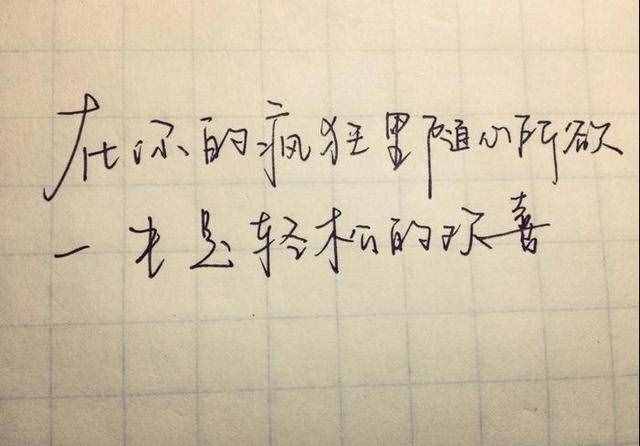 在你的疯狂里随心所欲
一 是轻松的欢喜